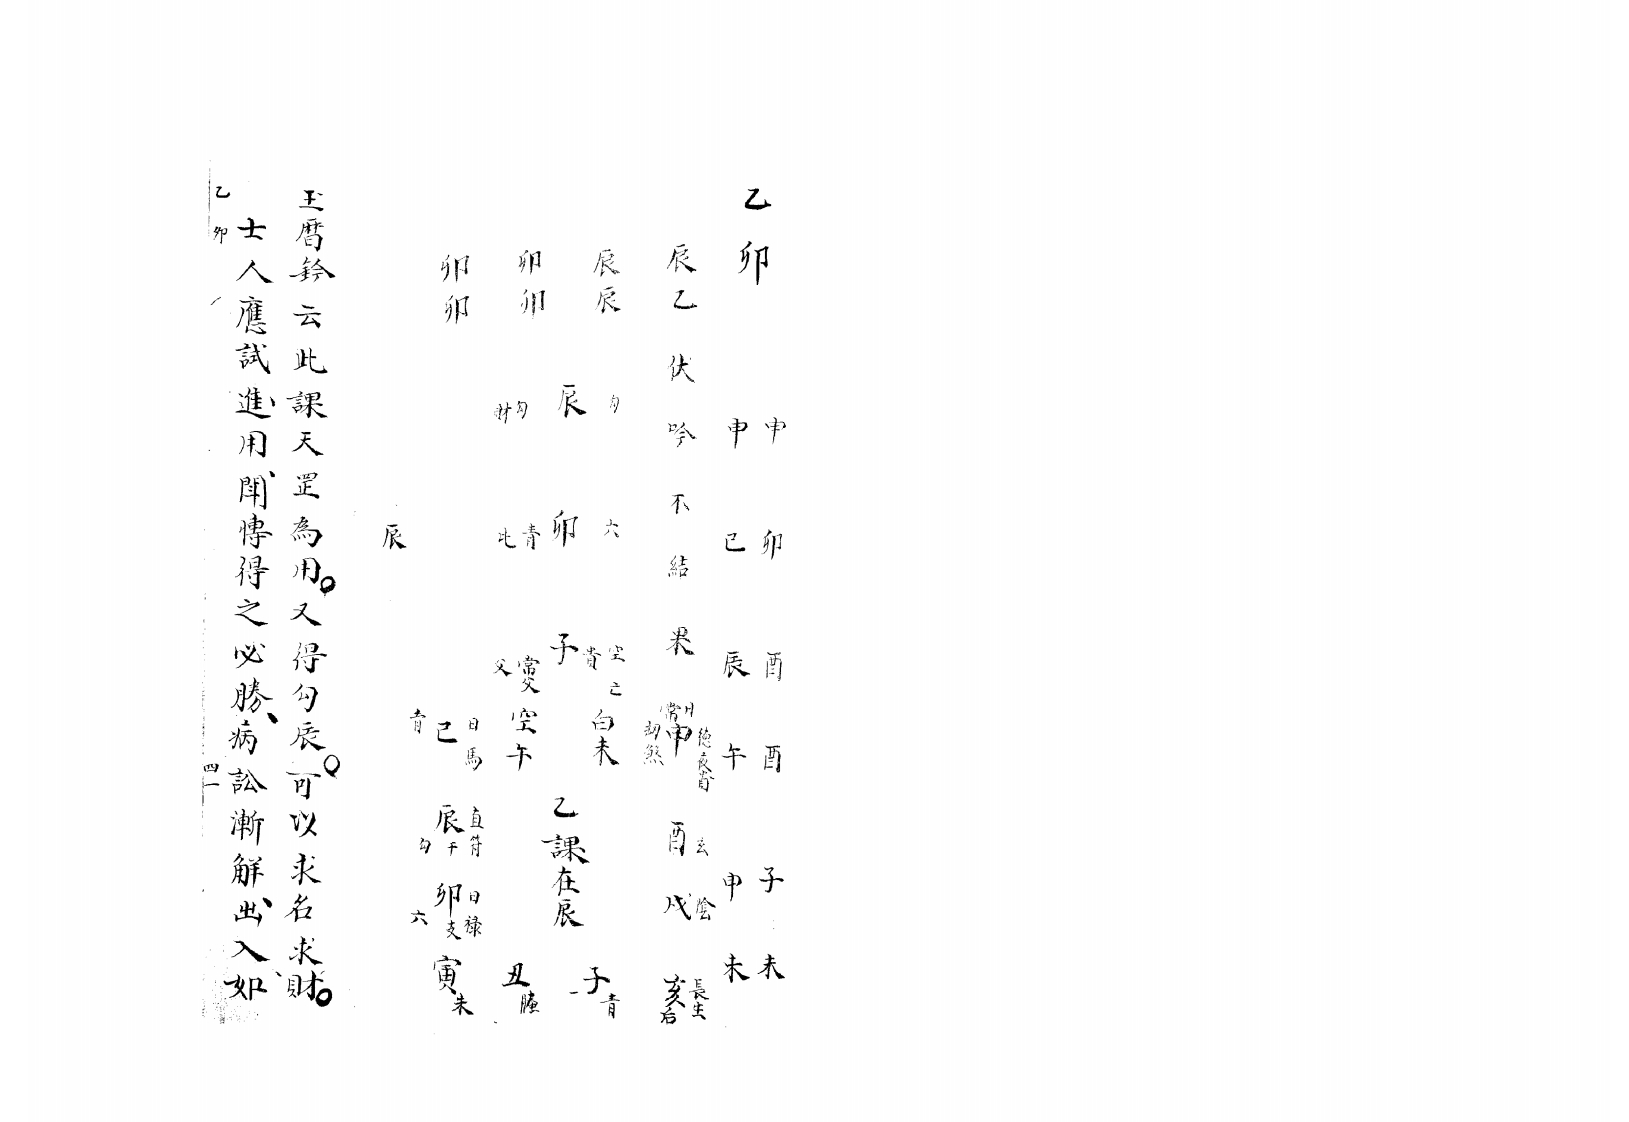 乙卯
申 卯 酉 酉 子 未
申 巳 辰 午 申 未
辰乙 伏吟不結果
德
常申 劫煞
酉 玄
戌 陰
亥 后 長生
辰辰
勾
辰
六
卯
空 貴
子
白未
乙課在辰
子 青
卯卯
勾 財
青 比
常 父
空午
丑
卯卯
日馬
巳 青
直符
辰 干 勾
日祿
卯 支 六
寅 朱
辰
玉曆鈐云此課天罡為用又得勾辰可以求名求財
士人應試進用閗愽得之必勝病訟漸解出入如
乙卯
四一